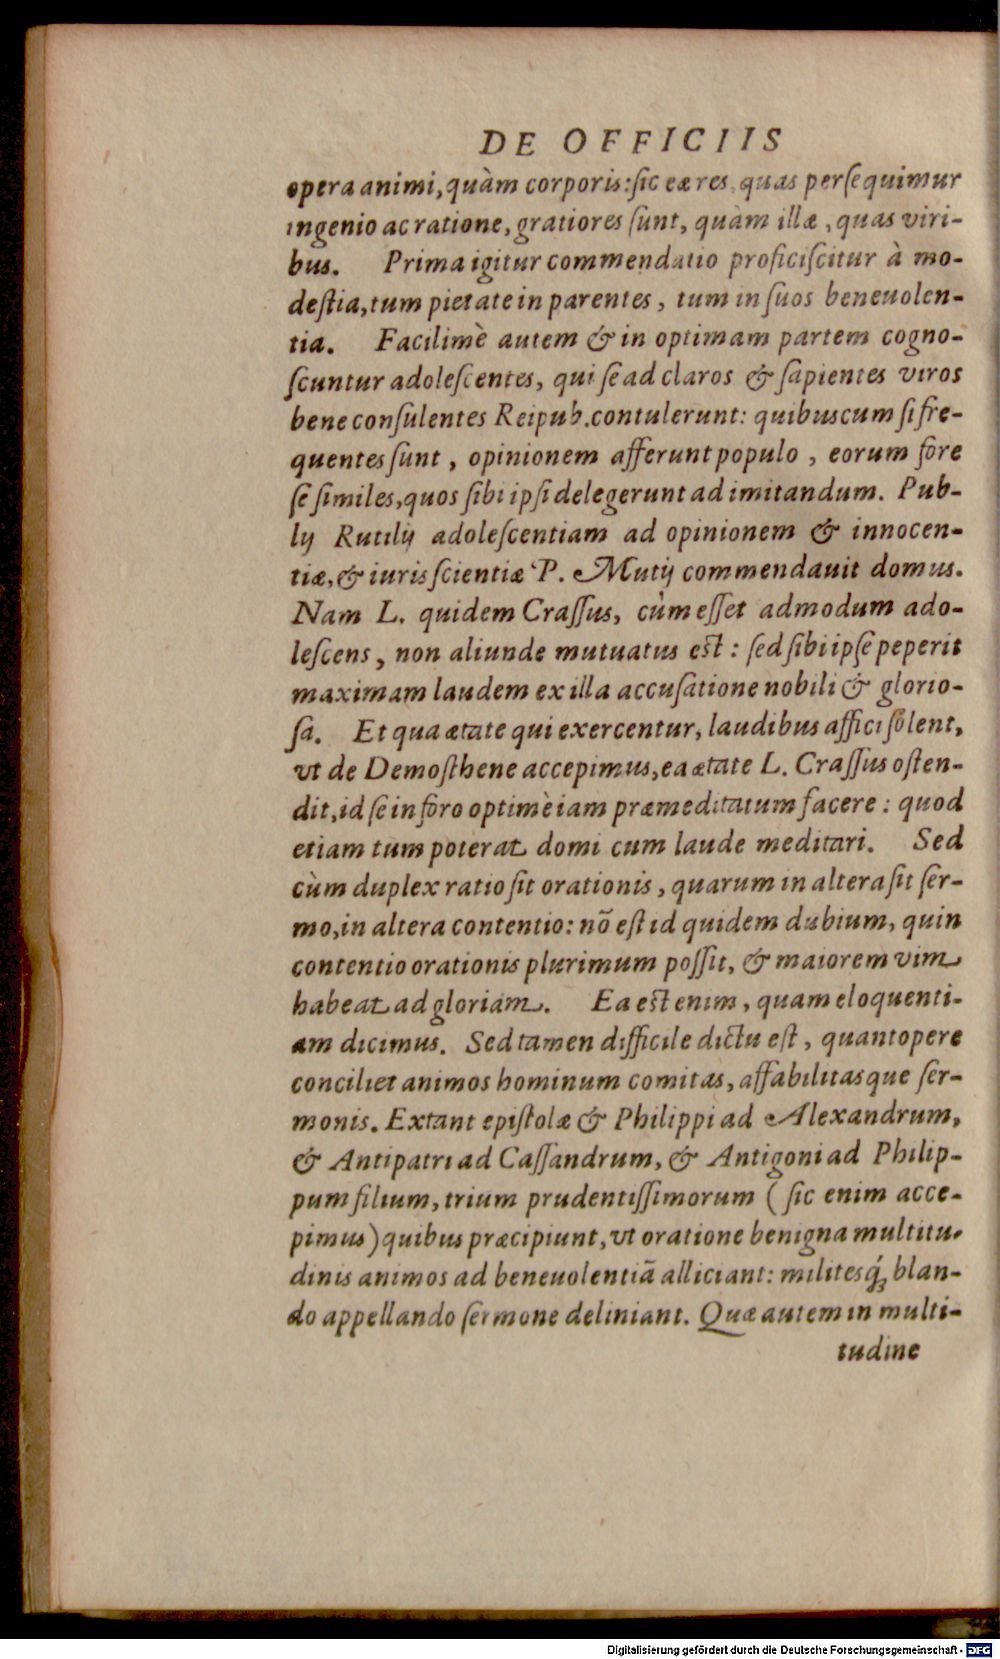 DE OFFICIIS
opera animi, quàm corporis: ſic eæ res, quas perſequimur
ingenio ac ratione, gratiores ſunt, quàm illæ, quas viri-
bus. Prima igitur commendatio proficiſcitur à mo-
deſtia, tum pietate in parentes, tum in ſuos beneuolen-
tia. Facilimè autem & in optimam partem cogno-
ſcuntur adoleſcentes, qui ſe ad claros & ſapientes viros
bene conſulentes Reipub. contulerunt: quibuscum ſi fre-
quentes ſunt, opinionem afferunt populo, eorum fore
ſe ſimiles, quos ſibi ipſi delegerunt ad imitandum. Pub-
lij Rutilij adoleſcentiam ad opinionem & innocen-
tiæ, & iuris ſcientiæ P. Mutij commendauit domus.
Nam L. quidem Craſſus, cùm eſſet admodum ado-
leſcens, non aliunde mutuatus eſt: ſed ſibi ipſe peperit
maximam laudem ex illa accuſatione nobili & glorio-
ſa. Et qua ætate qui exercentur, laudibus affici ſolent,
vt de Demoſthene accepimus, ea ætate L. Craſſus oſten-
dit, id ſe in foro optimè iam præmeditatum facere: quod
etiam tum poterat domi cum laude meditari. Sed
cùm duplex ratio ſit orationis, quarum in altera ſit ſer-
mo, in altera contentio: nõ eſt id quidem dubium, quin
contentio orationis plurimum poſſit, & maiorem vim
habeat ad gloriam. Ea eſt enim, quam eloquenti-
am dicimus. Sed tamen difficile dictu eſt, quantopere
conciliet animos hominum comitas, affabilitasque ſer-
monis. Extant epiſtolæ & Philippi ad Alexandrum,
& Antipatri ad Caſſandrum, & Antigoni ad Philip-
pum filium, trium prudentiſſimorum (ſic enim acce-
pimus) quibus præcipiunt, vt oratione benigna multitu-
dinis animos ad beneuolentiã alliciant: militesq́ꝫ blan-
do appellando ſermone deliniant. Quæ autem in multi-
tudine
Digitalisierung gefördert durch die Deutsche Forschungsgemeinschaft - DFG